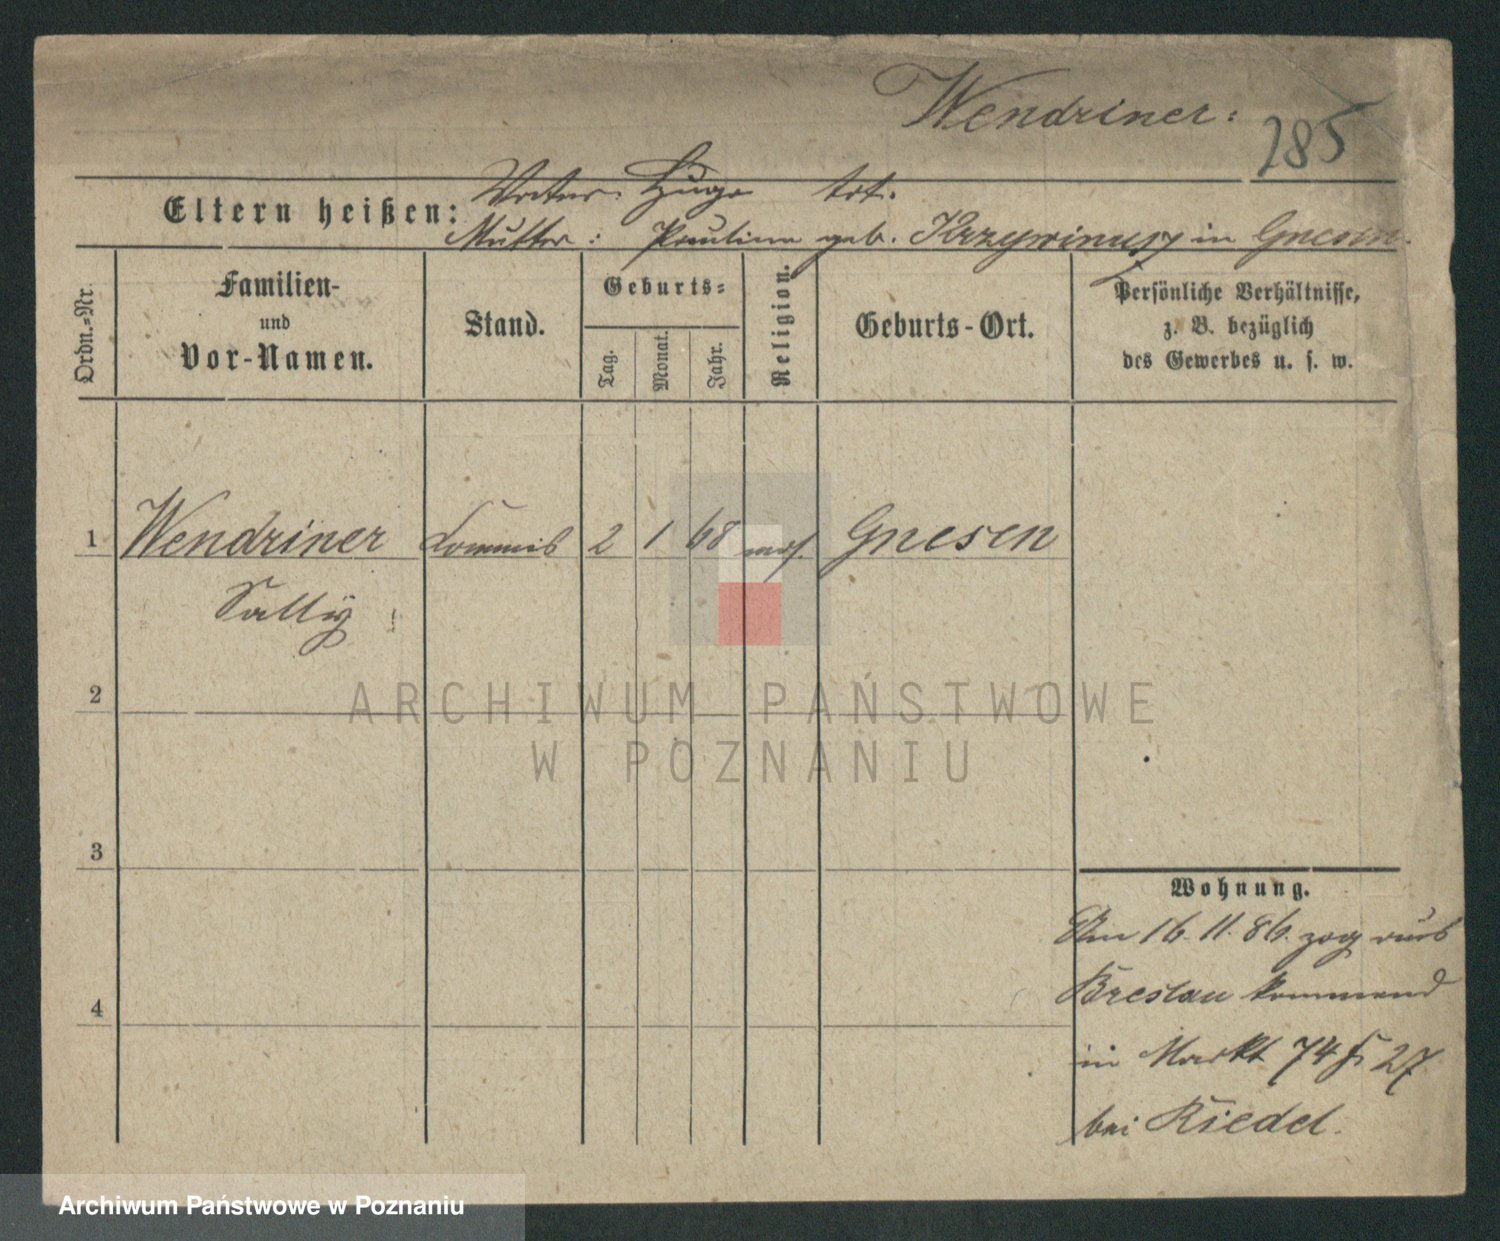 Wendriner:
285
Eltern heißen:
Vater: Hugo tot.
Mutter: Pauline geb. Krzywinusz in Gnesen.
Ordn.=Nr.
Familien-
und
Vor-Namen.
Stand.
Geburts=
Tag.
Monat.
Jahr.
Religion.
Geburts-Ort.
Persönliche Verhältnisse,
z. B. bezüglich
des Gewerbes u. s. w.
1 Wendriner Commis 2 1 68 mos. Gnesen
Sally
2
3
4
Wohnung.
Am 16. 11. 86. zog aus
Breslau kommend
in Markt 74 27
bei Riedel.
ARCHIWUM PAŃSTWOWE
W POZNANIU
Archiwum Państwowe w Poznaniu